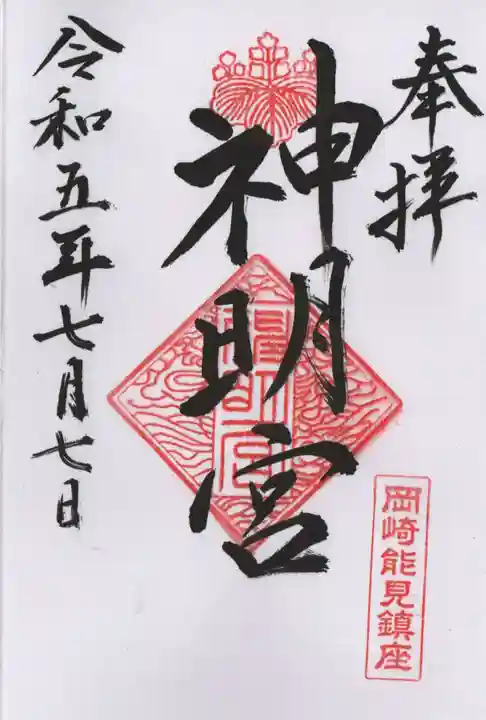 奉拝
神明宮
岡崎能見鎮座
令和五年七月七日